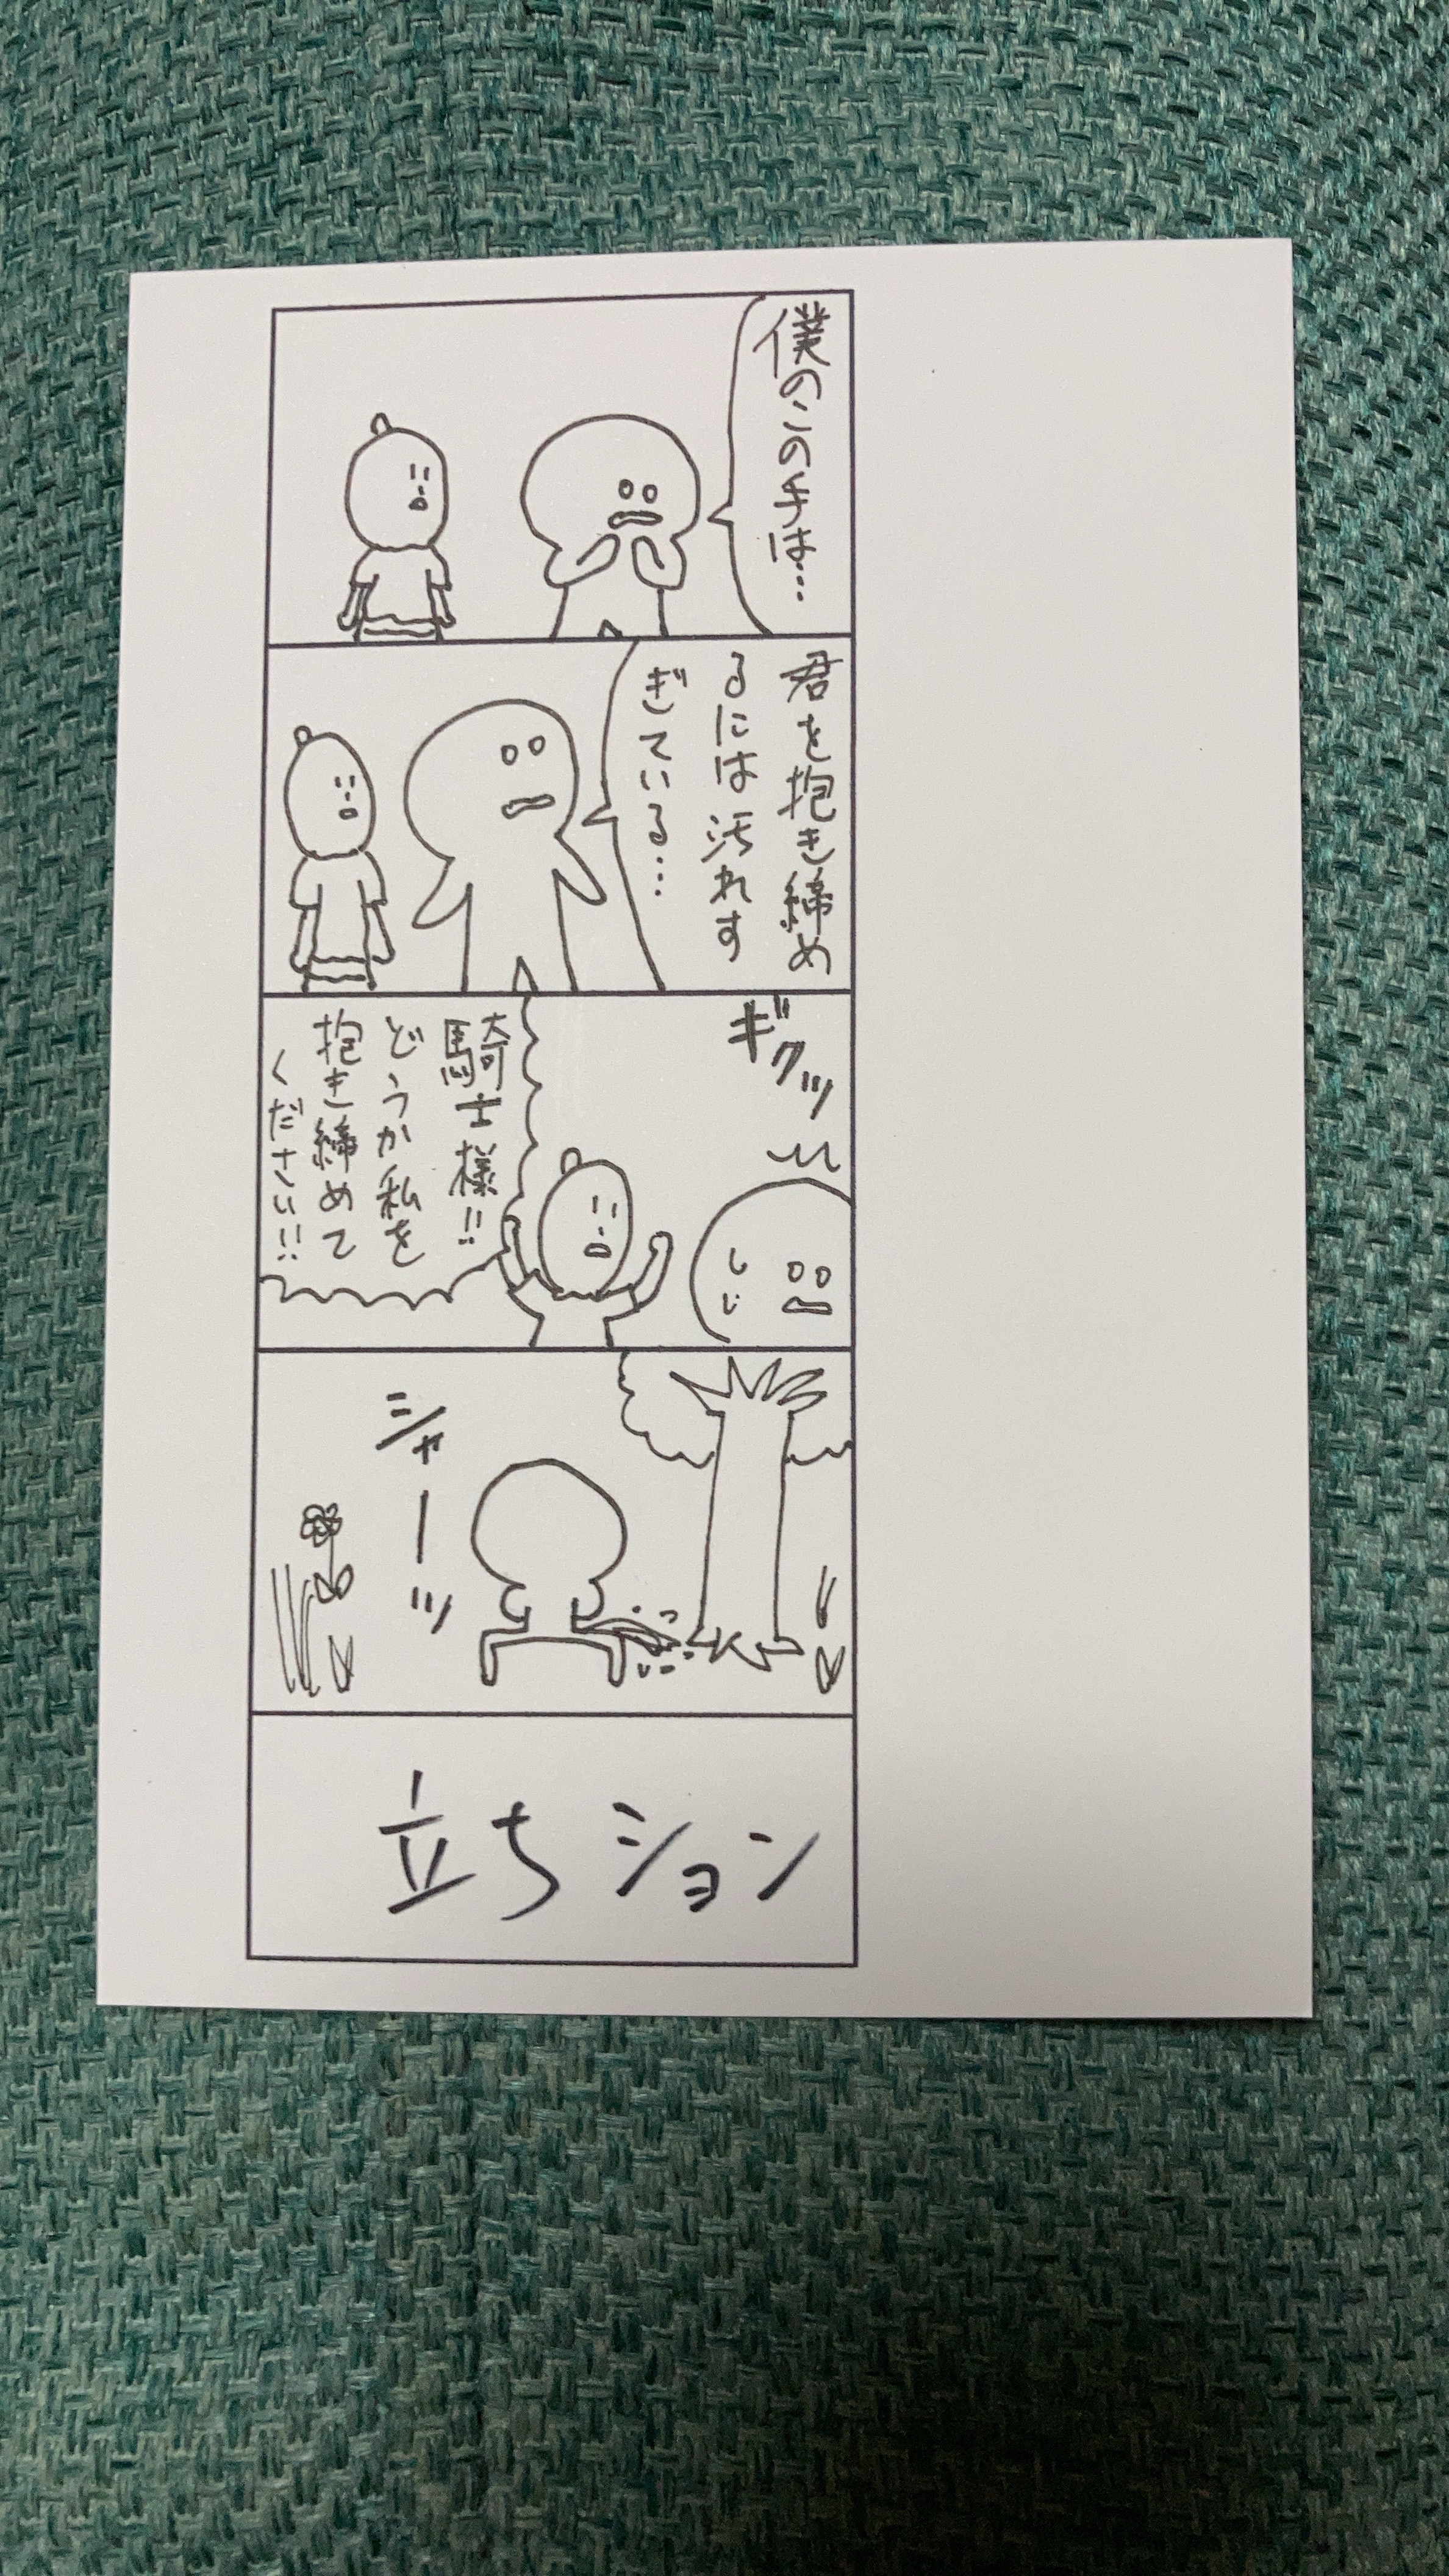 僕のこの手は…
君を抱き締め
るには汚れす
ぎている…
ギクッ
騎士様!!
どうか私を
抱き締めて
ください!!
シャーッ
立ちション